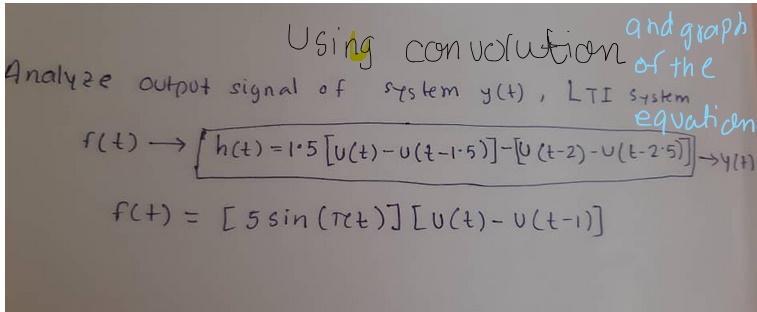 Using convolution and graph of the equation
Analyze output signal of system y(t), LTI system
f(t) → h(t) = 1.5 [U(t) - U(t-1.5)] - [U(t-2) - U(t-2.5)] → y(t)
f(t) = [5 sin (πt)] [U(t) - U(t-1)]